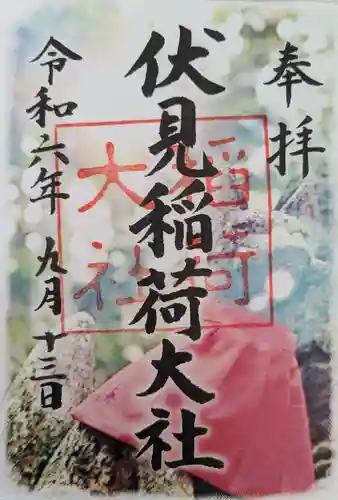 奉拝
伏見稲荷大社
稲荷
大社
令和六年 九月 十三日